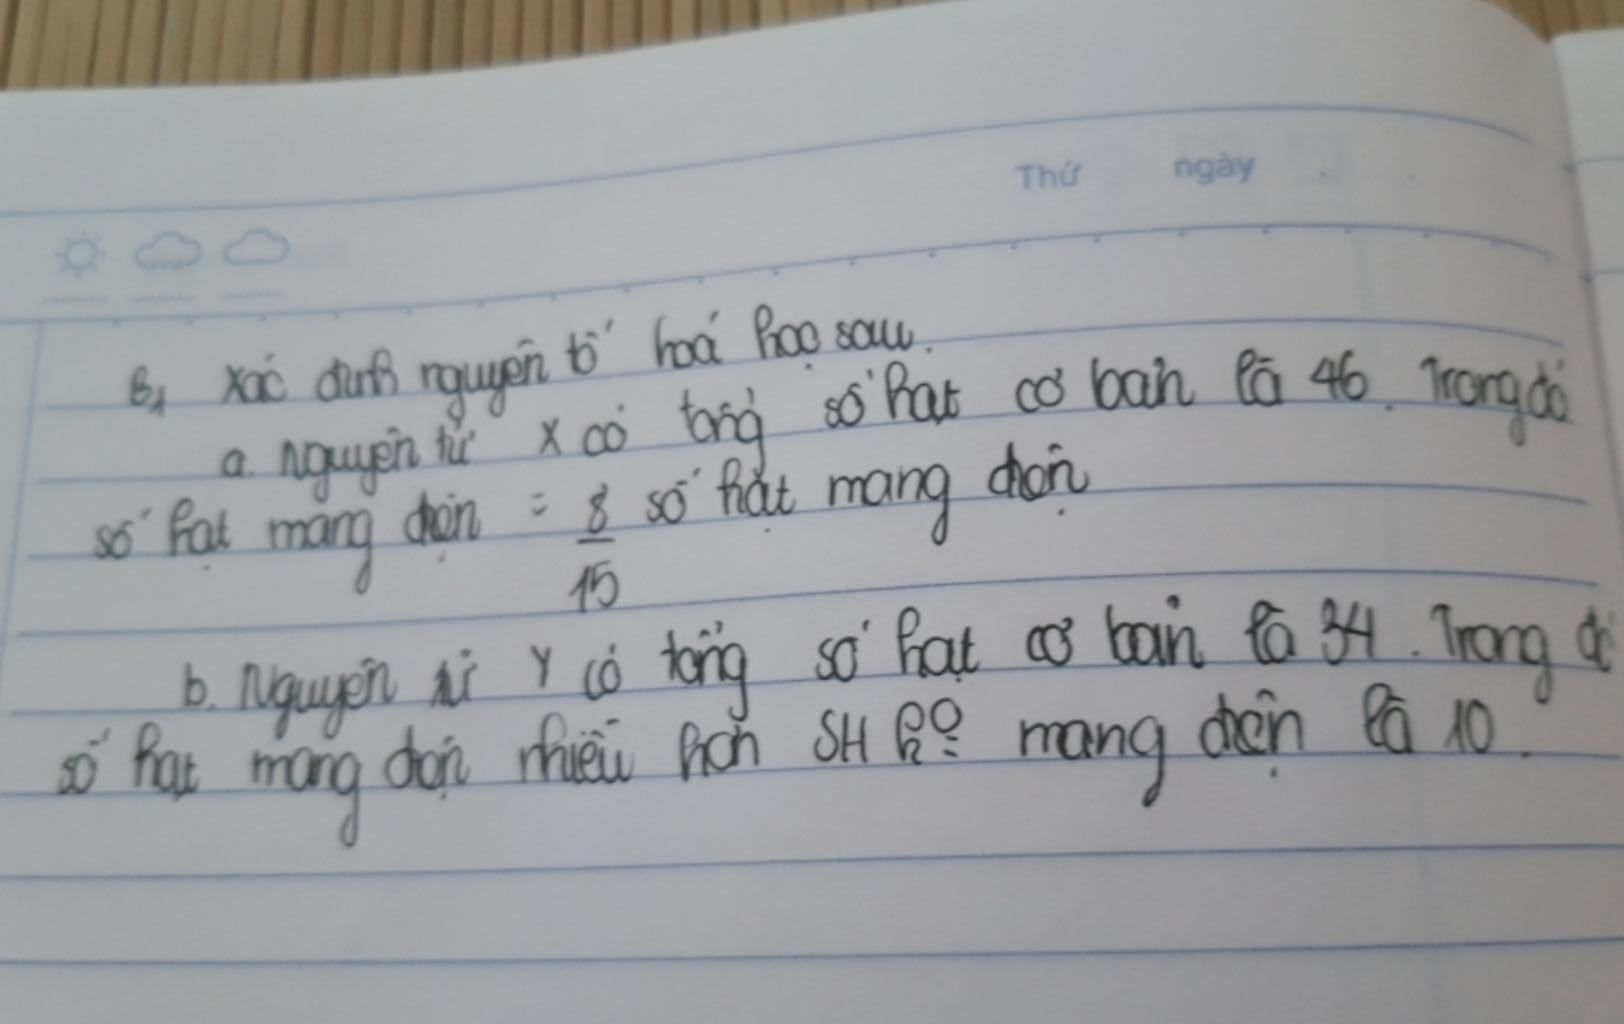 Thứ ngày
B1 Xác định nguyên tố hoá học sau.
a. Nguyên tử X có tổng số hạt cơ bản là 46. Trong đó
số hạt mang điện = 8/15 số hạt mang điện
b. Nguyên tử Y có tổng số hạt cơ bản là 34. Trong đó
số hạt mang điện nhiều hơn SH mang điện là 10.